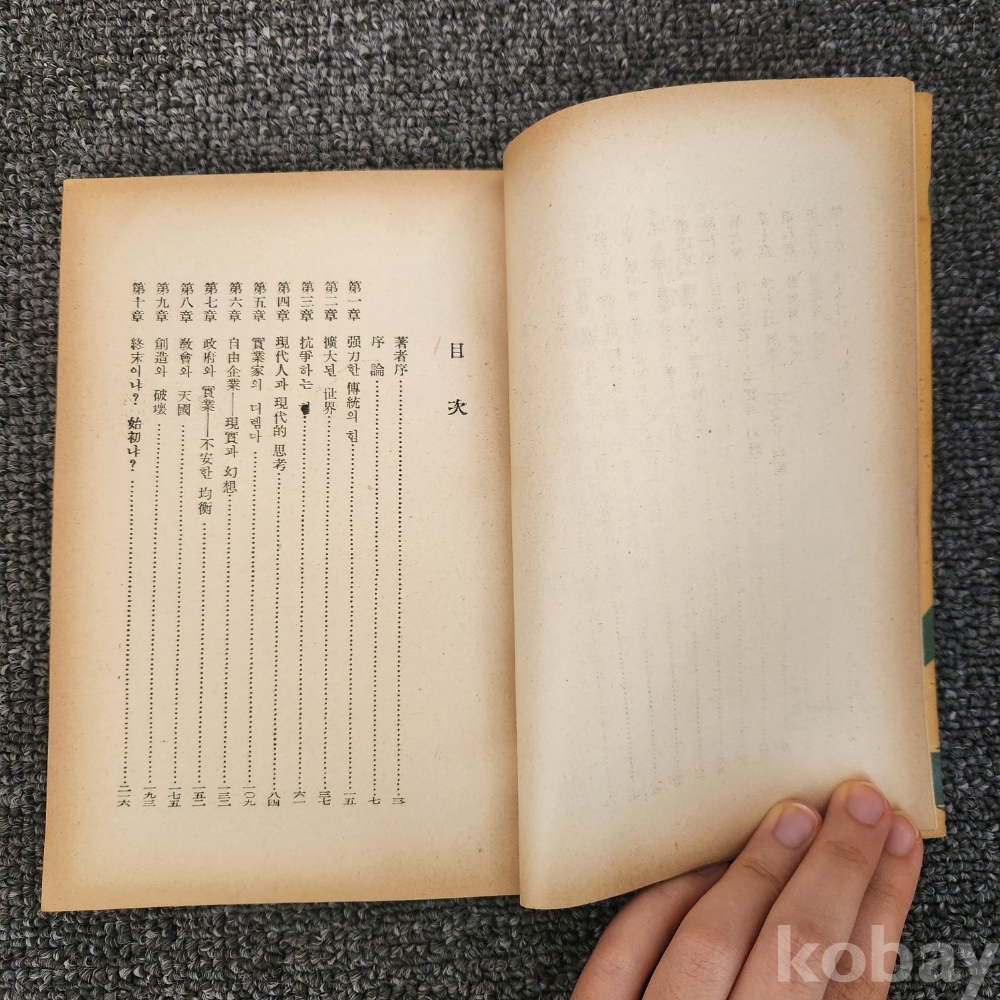 目 次
著者序 三
序 論 七
第一章 强力한 傳統의 힌 一五
第二章 擴大된 世界 三七
第三章 抗爭하는 六一
第四章 現代人과 現代的 思考 八四
第五章 實業家의 디렘마 一〇九
第六章 自由企業——現實과 幻想 一三二
第七章 政府와 實業——不安한 均衡 一五二
第八章 敎會와 天國 一七五
第九章 創造와 破壞 一九三
第十章 終末이냐? 始初냐? 二一六
kobay